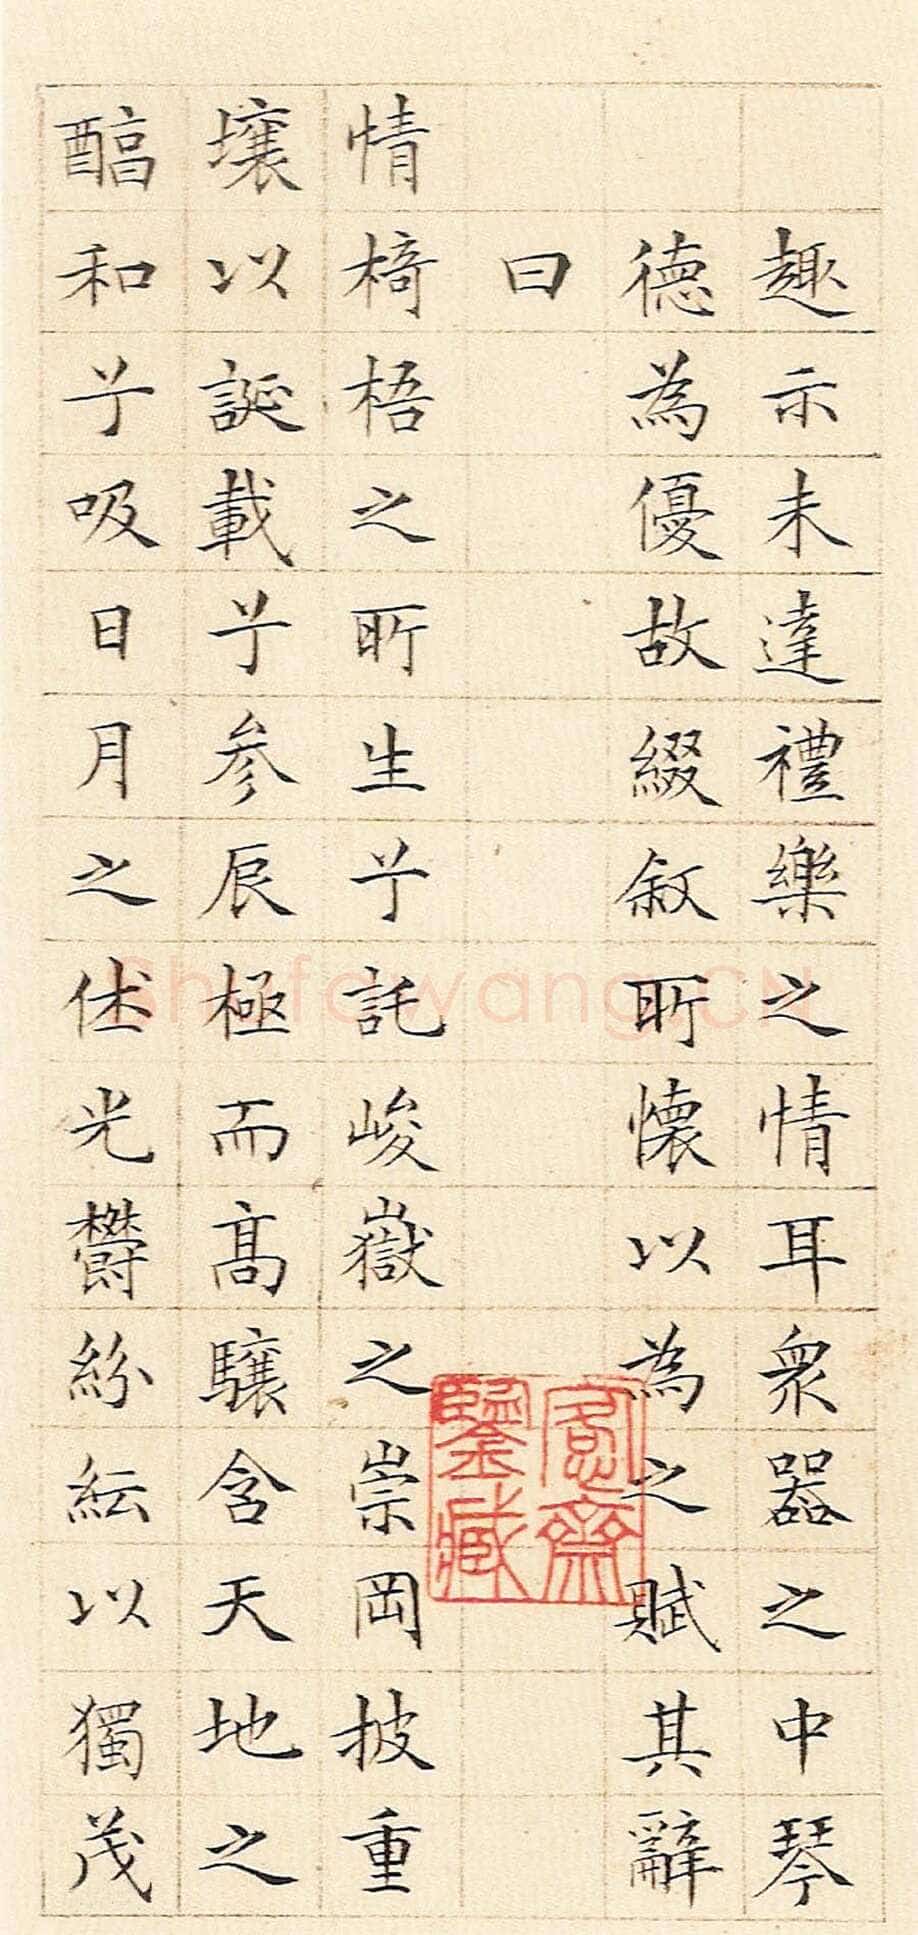 趣亦未達禮樂之情耳衆器之中琴
德為優故綴敘所懷以為之賦其辭
曰
情椅梧之所生兮託峻嶽之崇岡披重
壤以誕載兮参辰極而高驤含天地之
醕和兮吸日月之休光鬱紛紜以獨茂
愙齋
鑒藏
Shufawang.CN